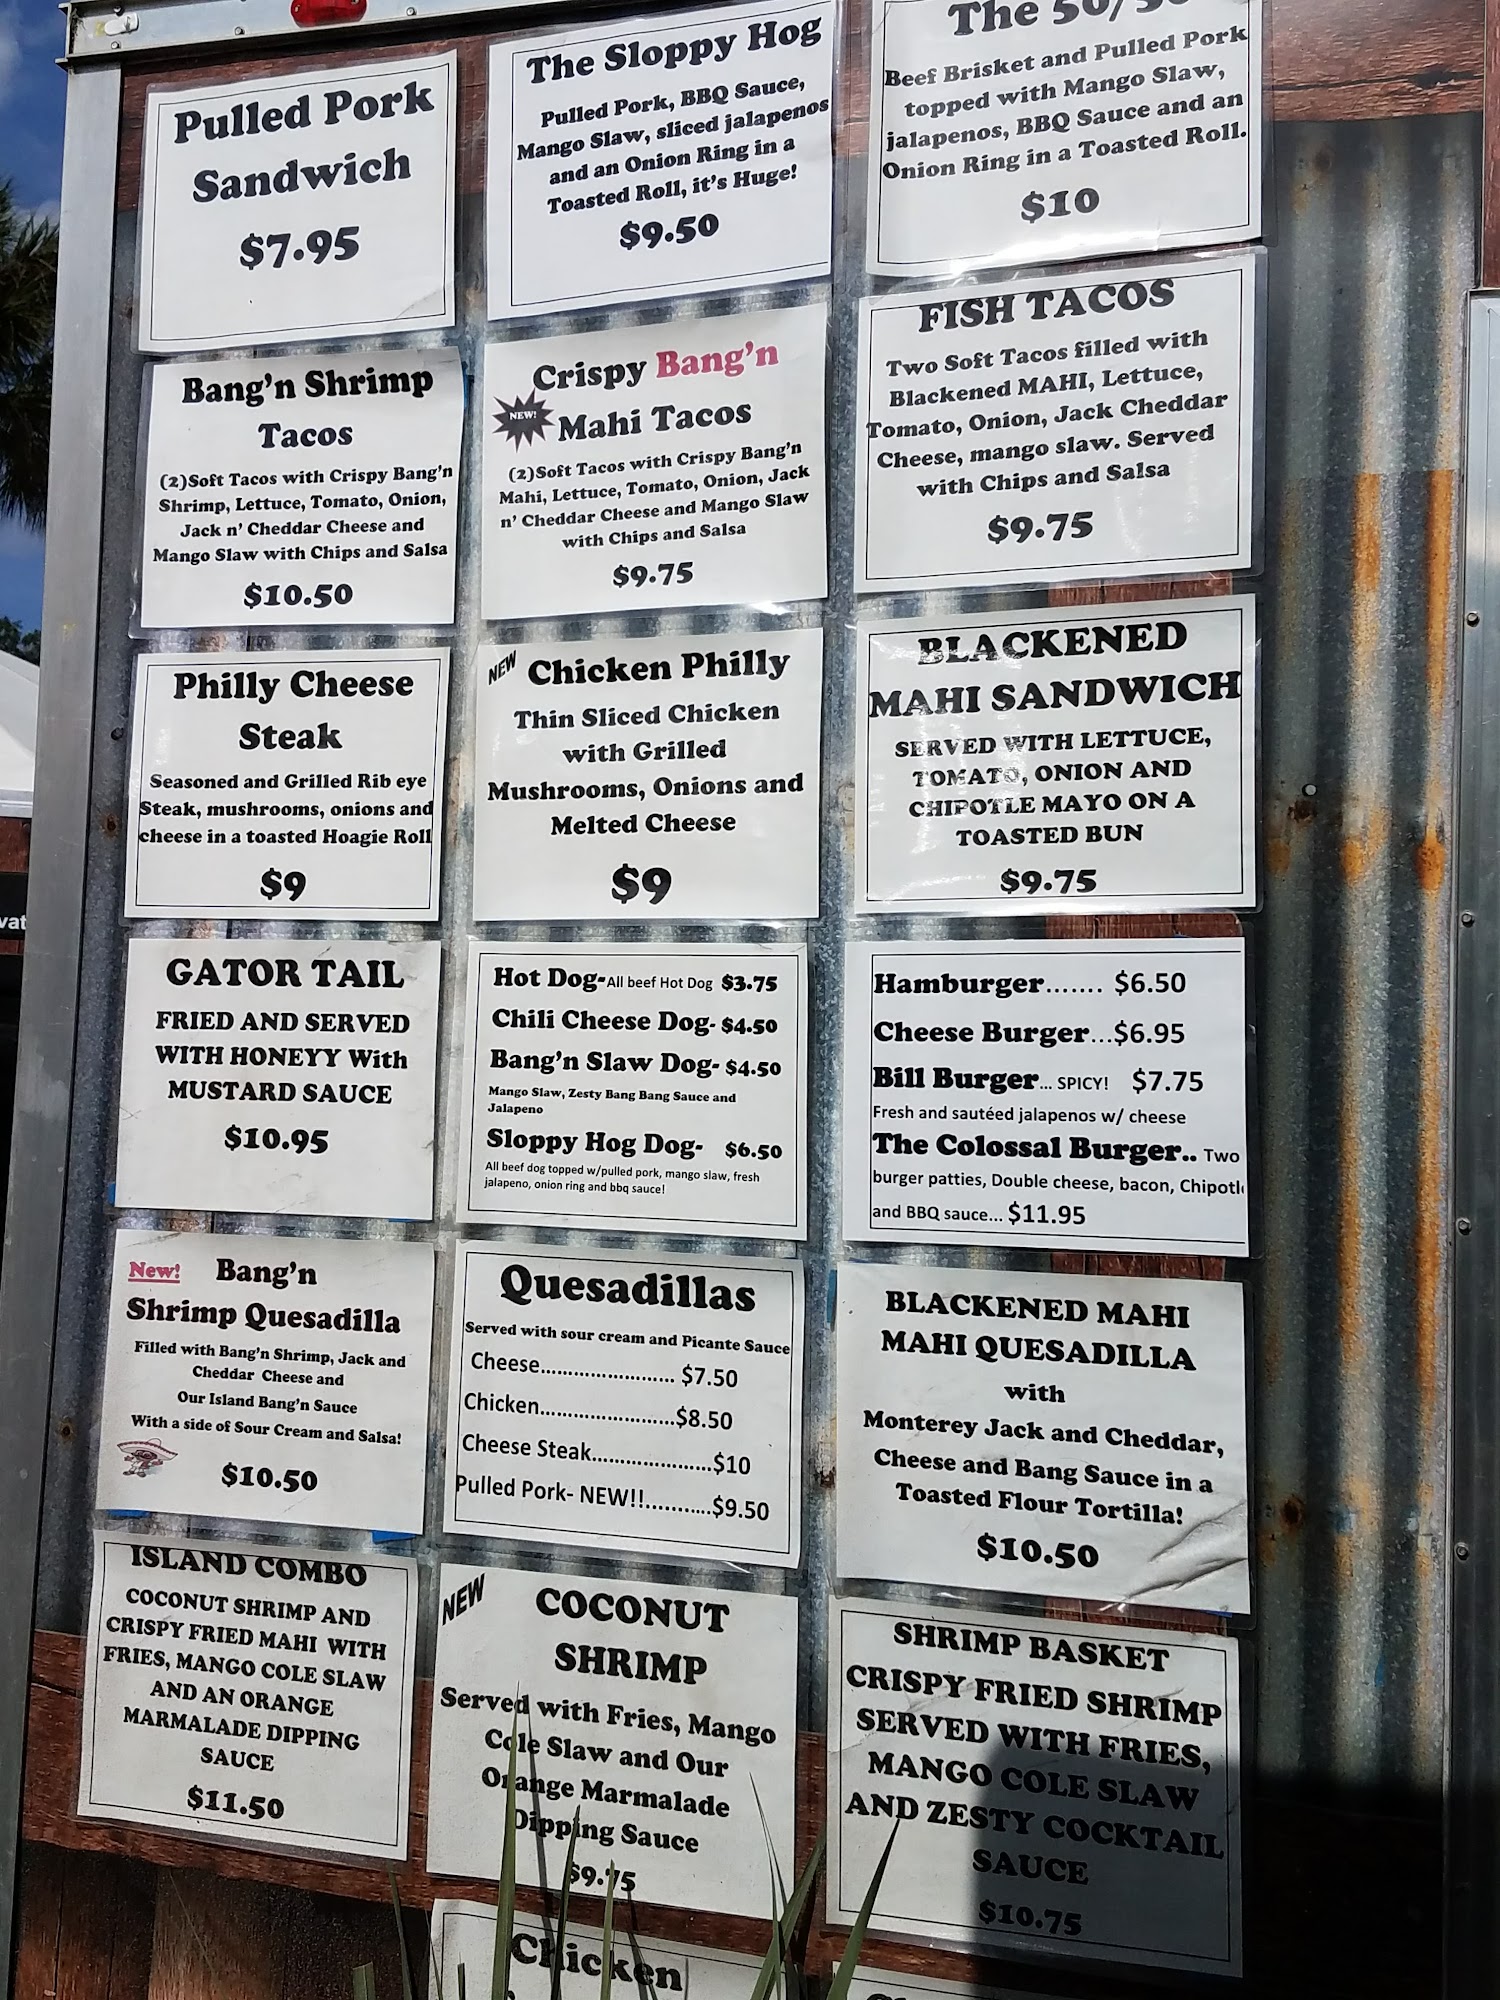 Pulled Pork
Sandwich
$7.95
The Sloppy Hog
Pulled Pork, BBQ Sauce,
Mango Slaw, sliced jalapenos
and an Onion Ring in a
Toasted Roll, it's Huge!
$9.50
The 50/50
Beef Brisket and Pulled Pork
topped with Mango Slaw,
jalapenos, BBQ Sauce and an
Onion Ring in a Toasted Roll.
$10
Bang'n Shrimp
Tacos
(2)Soft Tacos with Crispy Bang'n
Shrimp, Lettuce, Tomato, Onion,
Jack n' Cheddar Cheese and
Mango Slaw with Chips and Salsa
$10.50
Crispy Bang'n
NEW! Mahi Tacos
(2)Soft Tacos with Crispy Bang'n
Mahi, Lettuce, Tomato, Onion, Jack
n' Cheddar Cheese and Mango Slaw
with Chips and Salsa
$9.75
FISH TACOS
Two Soft Tacos filled with
Blackened MAHI, Lettuce,
Tomato, Onion, Jack Cheddar
Cheese, mango slaw. Served
with Chips and Salsa
$9.75
Philly Cheese
Steak
Seasoned and Grilled Rib eye
Steak, mushrooms, onions and
cheese in a toasted Hoagie Roll
$9
NEW Chicken Philly
Thin Sliced Chicken
with Grilled
Mushrooms, Onions and
Melted Cheese
$9
BLACKENED
MAHI SANDWICH
SERVED WITH LETTUCE,
TOMATO, ONION AND
CHIPOTLE MAYO ON A
TOASTED BUN
$9.75
GATOR TAIL
FRIED AND SERVED
WITH HONEYY With
MUSTARD SAUCE
$10.95
Hot Dog-All beef Hot Dog $3.75
Chili Cheese Dog- $4.50
Bang'n Slaw Dog- $4.50
Mango Slaw, Zesty Bang Bang Sauce and
Jalapeno
Sloppy Hog Dog- $6.50
All beef dog topped w/pulled pork, mango slaw, fresh
jalapeno, onion ring and bbq sauce!
Hamburger....... $6.50
Cheese Burger...$6.95
Bill Burger... SPICY! $7.75
Fresh and sautéed jalapenos w/ cheese
The Colossal Burger.. Two
burger patties, Double cheese, bacon, Chipotl
and BBQ sauce... $11.95
New! Bang'n
Shrimp Quesadilla
Filled with Bang'n Shrimp, Jack and
Cheddar Cheese and
Our Island Bang'n Sauce
With a side of Sour Cream and Salsa!
$10.50
Quesadillas
Served with sour cream and Picante Sauce
Cheese........................ $7.50
Chicken........................$8.50
Cheese Steak.....................$10
Pulled Pork- NEW!!...........$9.50
BLACKENED MAHI
MAHI QUESADILLA
with
Monterey Jack and Cheddar,
Cheese and Bang Sauce in a
Toasted Flour Tortilla!
$10.50
ISLAND COMBO
COCONUT SHRIMP AND
CRISPY FRIED MAHI WITH
FRIES, MANGO COLE SLAW
AND AN ORANGE
MARMALADE DIPPING
SAUCE
$11.50
NEW COCONUT
SHRIMP
Served with Fries, Mango
Cole Slaw and Our
Orange Marmalade
Dipping Sauce
$9.75
SHRIMP BASKET
CRISPY FRIED SHRIMP
SERVED WITH FRIES,
MANGO COLE SLAW
AND ZESTY COCKTAIL
SAUCE
$10.75
Chicken
vat